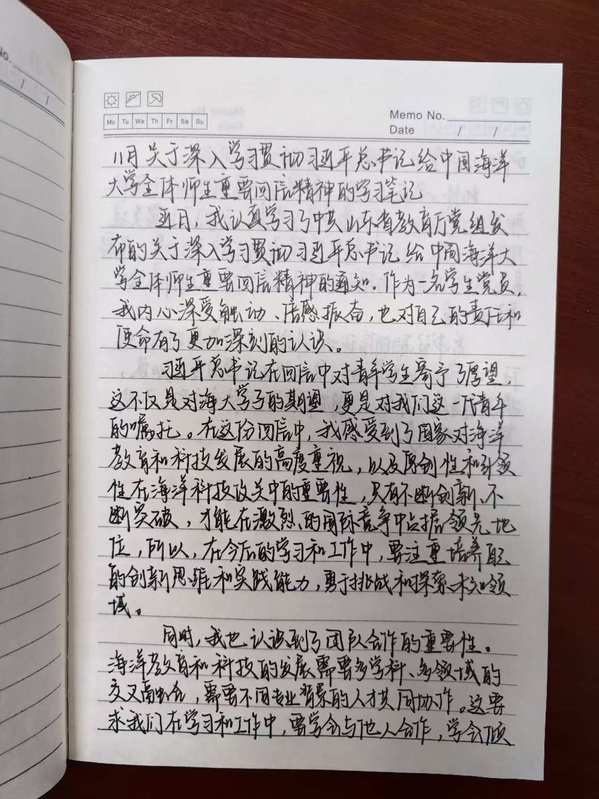 No.
/ /
Mo Tu We Th Fr Sa Su
Memo No.
Date / /
11月关于深入学习贯彻习近平总书记给中国海洋
大学全体师生重要回信精神的学习笔记
近日，我认真学习了中共山东省教育厅党组发
布的关于深入学习贯彻习近平总书记给中国海洋大
学全体师生重要回信精神的通知。作为一名学生党员，
我内心深受触动、倍感振奋，也对自己的责任和
使命有了更加深刻的认识。
习近平总书记在回信中对青年学生寄予了厚望，
这不仅是对海大学子的期盼，更是对我们这一代青年
的嘱托。在这份回信中，我感受到了国家对海洋
教育和科技发展的高度重视，以及原创性和引领
性在海洋科技攻关中的重要性，只有不断创新、不
断突破，才能在激烈的国际竞争中占据领先地
位，所以，在今后的学习和工作中，要注重培养自己
的创新思维和实践能力，勇于挑战和探索未知领
域。
同时，我也认识到了团队合作的重要性。
海洋教育和科技的发展需要多学科、多领域的
交叉融合，需要不同专业背景的人才共同协作。这要
求我们在学习和工作中，要学会与他人合作，学会倾